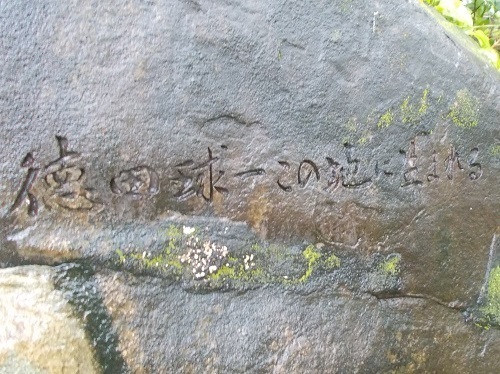 徳田球一この地に生まれる